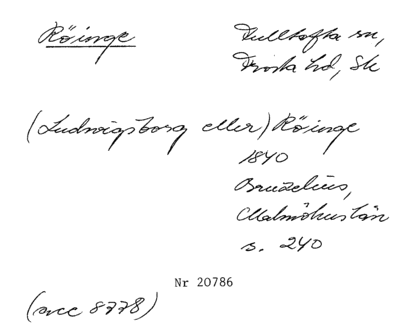 Röinge
Hulltofta sn,
Frosta hd, Sk
(Ludvigsborg eller) Röinge
1840
Bruzelius,
Malmöhus län
s. 240
Nr 20786
(acc 8778)